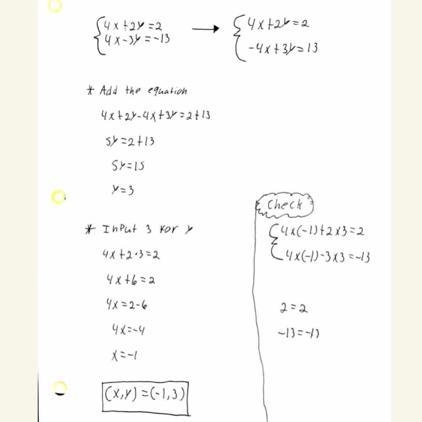 4x+2y=2 → 4x+2y=2
4x-3y=-13 -4x+3y=13
* Add the equation
4x+2y-4x+3y=2+13
5y=2+13
5y=15
y=3
* Input 3 for y
4x+2·3=2
4x+6=2
4x=2-6
4x=-4
x=-1
(x,y)=(-1,3)
Check
4x(-1)+2x3=2
4x(-1)-3x3=-13
2=2
-13=-13